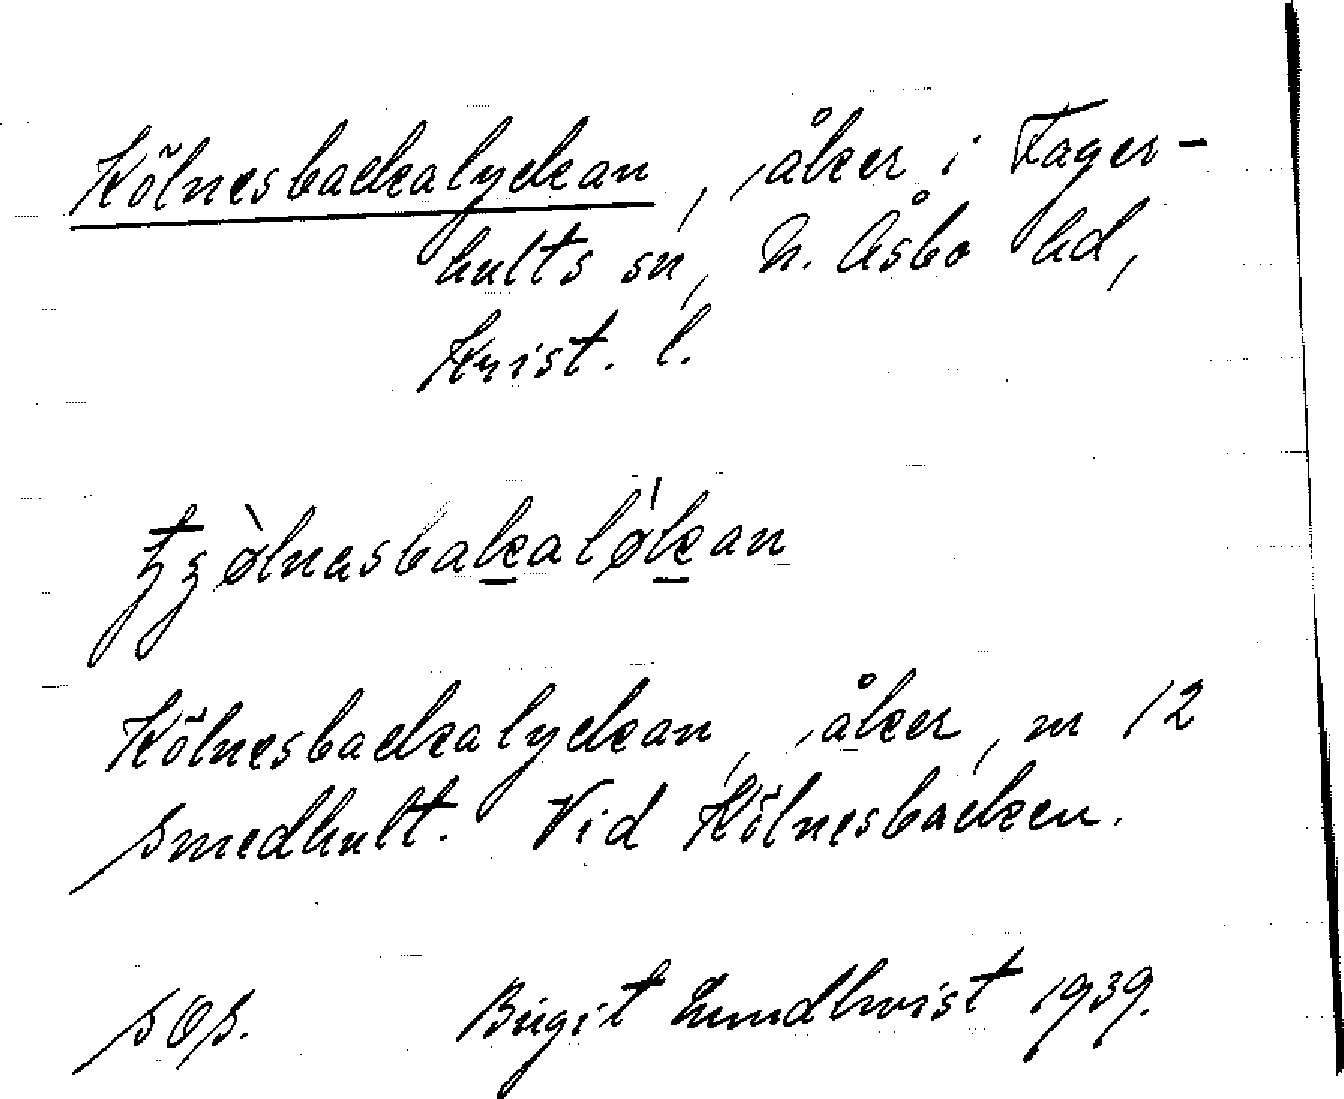 Kölnesbackalyckan, åker i Fager-
hults sn, N. Åsbo hd,
Krist. l.
Kölnesbackalyckan, åker, nr 12
Smedhult. Vid Kölnesbacken.
SOS. Birgit Lundkvist 1939.